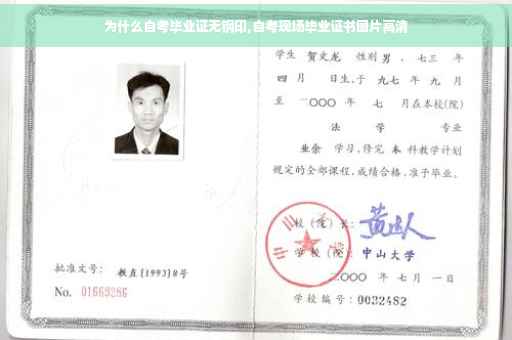 为什么自考毕业证无钢印,自考现场毕业证书图片高清
学生 贺文龙 性别 男 、七三 年
四 月 日生,于 九七 年 九 月
至 二〇〇〇 年 七 月在本校(院)
法 学 专业
业余 学习,修完 本 科教学计划
规定的全部课程,成绩合格,准予毕业。
校(院)长:
学校(院): 中山大学
二〇〇〇 年 七 月 一 日
批准文号: 教直[1993]8号
No. 01669286
学校编号: 0032482